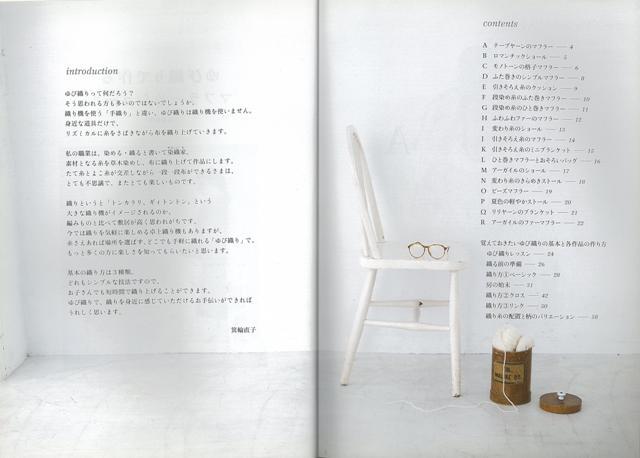 introduction
ゆび織りって何だろう？
そう思われる方も多いのではないでしょうか。
織り機を使う「手織り」と違い、ゆび織りは織り機を使いません。
身近な道具だけで、
リズミカルに糸をさばきながら布を織り上げていきます。
私の職業は、染める・織ると書いて染織家。
素材となる糸を草木染めし、布に織り上げて作品にします。
たて糸とよこ糸が交差しながら一段一段布ができるさまは、
とても不思議で、またとても楽しいものです。
織りというと「トンカラリ、ギィトントン」という
大きな織り機がイメージされるのか、
編みものと比べて敷居が高く思われがちです。
今では織りを気軽に楽しめる卓上織り機もありますが、
糸さえあれば場所を選ばす、どこでも手軽に織れる「ゆび織り」で、
もっと多くの方に楽しさを知ってもらいたいと思います。
基本の織り方は3種類。
どれもシンプルな技法ですので、
お子さんでも短時間で織り上げることができます。
ゆび織りで、織りを身近に感じていただけるお手伝いができれば
うれしく思います。
箕輪直子
contents
A テープヤーンのマフラー — 4
B ロマンチックショール — 5
C モノトーンの格子マフラー — 6
D ふた巻きのシンプルマフラー — 8
E 引きそろえ糸のクッション — 9
F 段染め糸のふた巻きマフラー — 10
G 段染め糸のひと巻きマフラー — 11
H ふわふわファーのマフラー — 12
I 変わり糸のショール — 13
J 引きそろえ糸のマフラー — 14
K 引きそろえ糸のミニブランケット — 15
L ひと巻きマフラーとおそろいバッグ — 16
M アーガイルのショール — 17
N 変わり糸のきらめきストール — 18
O ビーズマフラー — 19
P 夏色の軽やかストール — 20
Q リリヤーンのブランケット — 21
R アーガイルのファーマフラー — 22
覚えておきたいゆび織りの基本と各作品の作り方
ゆび織りレッスン — 24
織る前の準備 — 26
織り方①ベーシック — 28
房の始末 — 31
織り方②クロス — 42
織り方③リンク — 50
織り糸の配置と柄のバリエーション — 58